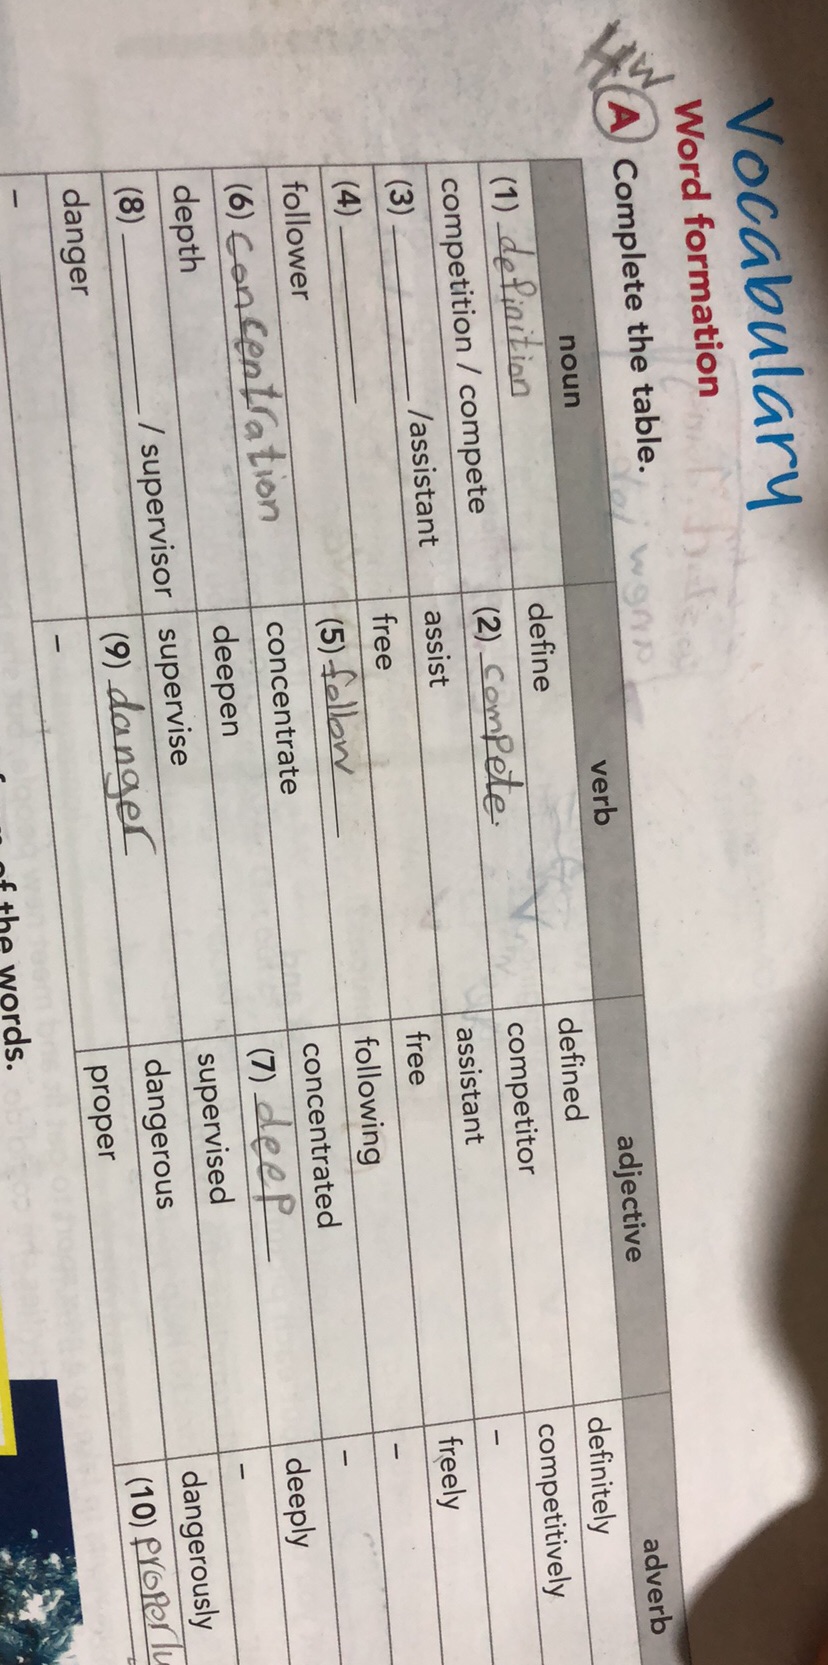 Vocabulary
Word formation
HW
A Complete the table.
noun verb adjective adverb
(1) definition define defined definitely
competition / compete (2) compete. competitor competitively
(3) ________ /assistant assist assistant –
(4) ________ free free freely
follower (5) follow following –
(6) concentration concentrate concentrated –
depth deepen (7) deep deeply
(8) ________ / supervisor supervise supervised –
danger (9) danger dangerous dangerously
– – proper (10) properly
of the words.